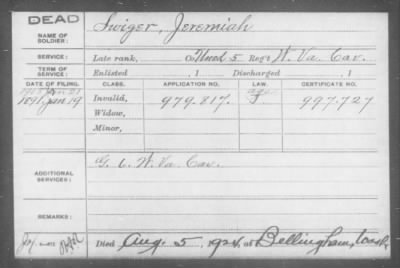 DEAD
NAME OF SOLDIER: Swiger, Jeremiah
SERVICE: Late rank, Co. Unasd 5 Reg't W. Va. Cav.
TERM OF SERVICE: Enlisted , 1 Discharged , 1
DATE OF FILING. CLASS. APPLICATION NO. LAW. CERTIFICATE NO.
Jan 21
1891 Jan 19 Invalid, 979.817. 997.727
Widow,
Minor,
ADDITIONAL SERVICES: G. 6. W. Va Cav.
REMARKS:
Died Aug. 5, 1924, at Bellingham, Wash.